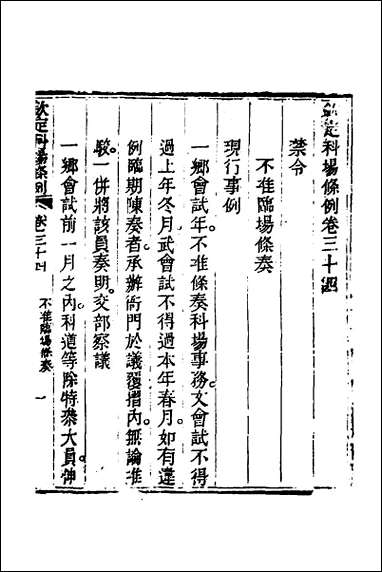 欽定科場條例卷三十四
禁令
不准臨場條奏
現行事例
一鄉會試年不准條奏科場事務文會試不得
過上年冬月武會試不得過本年春月如有違
例臨期陳奏者承辦衙門於議覆摺內無論准
駁一併將該員奏明交部察議
一鄉會試前一月之內科道等除特參大員伸
欽定科場條例 卷三十四 不准臨場條奏 一